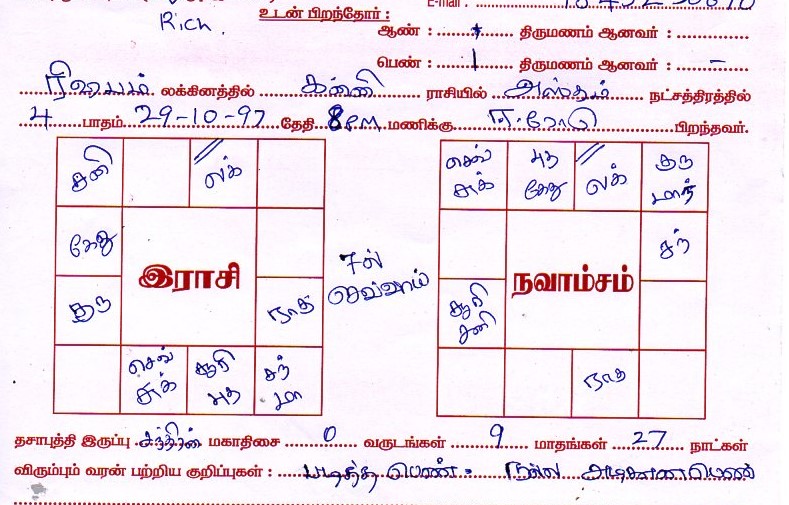 உடன் பிறந்தோர் :
Rich.
ஆண் : திருமணம் ஆனவர் :
பெண் : 1 திருமணம் ஆனவர் : –
ரிஷபம் லக்கினத்தில் கன்னி ராசியில் அஸ்தம் நட்சத்திரத்தில்
4 பாதம் 29-10-97 தேதி 8PM மணிக்கு ஈரோடு பிறந்தவர்.
சனி லக்
கேது
குரு
இராசி
ராகு
செவ் சுக்
சூரி புத
சந் மா
7ல் செவ்வாய்
செவ் சுக்
புத கேது
லக்
குரு மாந்
சந்
நவாம்சம்
சூரி சனி
ராகு
தசாபுத்தி இருப்பு சந்திரன் மகாதிசை 0 வருடங்கள் 9 மாதங்கள் 27 நாட்கள்
விரும்பும் வரன் பற்றிய குறிப்புகள் : படித்த பெண். நல்ல அழகான பெண்